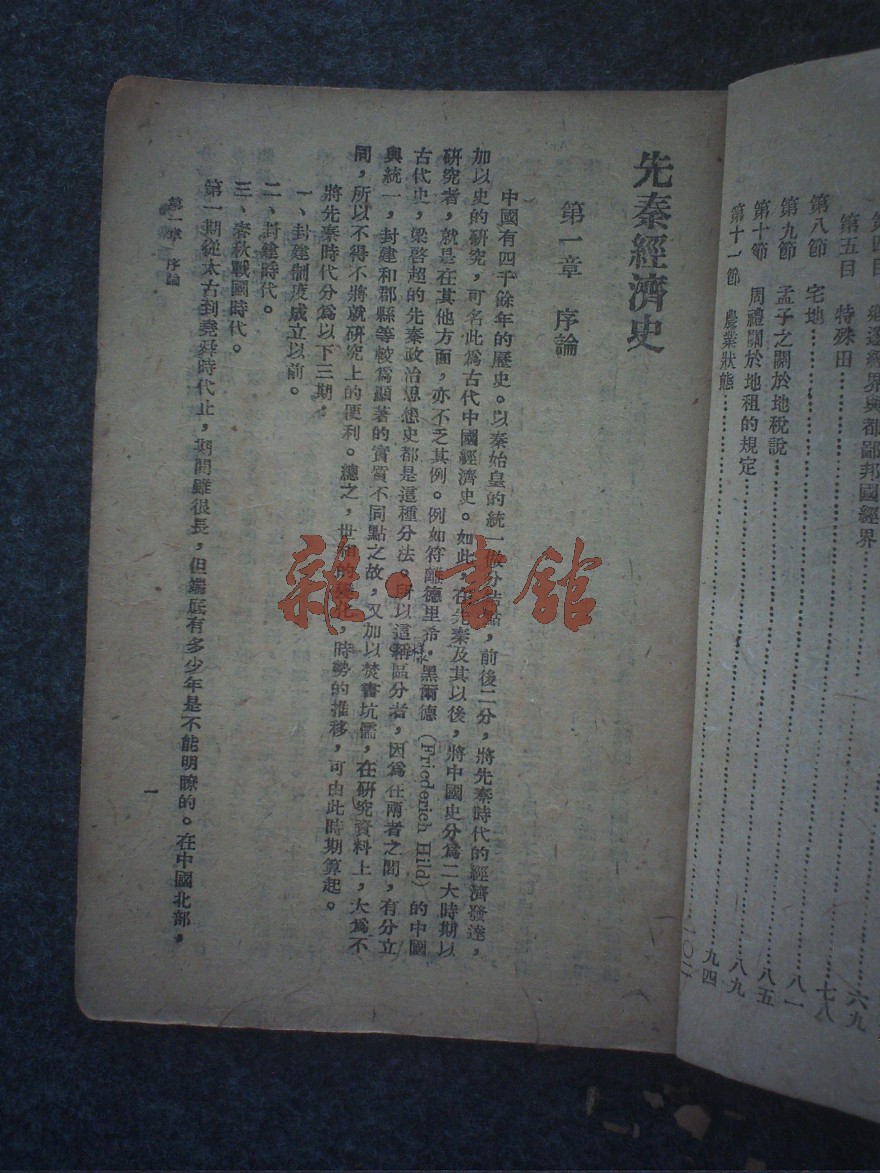 第四目 鄉遂經界與都鄙邦國經界 六九
第五目 特殊田 七八
第八節 宅地 八一
第九節 孟子之關於地稅說 八五
第十節 周禮關於地租的規定 八九
第十一節 農業狀態 九四
一〇二
先秦經濟史
第一章 序論
中國有四千餘年的歷史。以秦始皇的統一做分諾點，前後二分，將先秦時代的經濟發達，
加以史的研究，可名此爲古代中國經濟史。如此，在先秦及其以後，將中國史分爲二大時期以
研究者，就是在其他方面，亦不乏其例。例如符離德里希，黑爾德（Friederich Hild）的中國
古代史，梁啓超的先秦政治思想史都是這種分法。所以這樣區分者，因爲在兩者之間，有分立
與統一，封建和郡縣等較爲顯著的實質不同點之故，又加以焚書坑儒，在研究資料上，大爲不
同，所以不得不將就研究上的便利。總之，世相的變化，時勢的推移，可由此時期算起。
將先秦時代分爲以下三期：
一、封建制度成立以前。
二、封建時代。
三、春秋戰國時代。
第一期從太古到堯舜時代止，期間雖很長，但端底有多少年是不能明瞭的。在中國北部，
第一章 序論
一
雜·書館